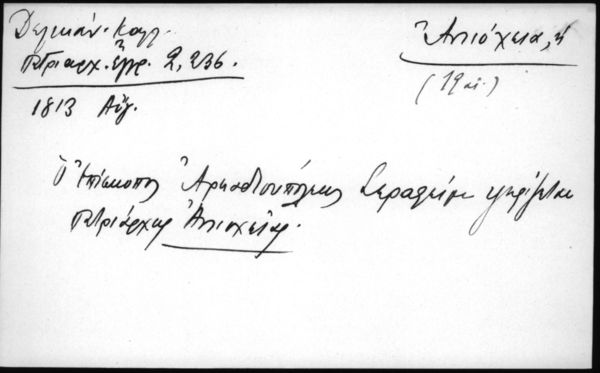 Δελικάν. Καλλ.
Πατριαρχ. Ἔγγρ. 2, 236.
1813 Αὔγ.
Ἀντιόχεια, ἡ
(19 αἰ.)
Ὁ Ἐπίσκοπος Ἀρκαδιουπόλεως Σεραφείμ ψηφίζεται
Πατριάρχης Ἀντιοχείας.